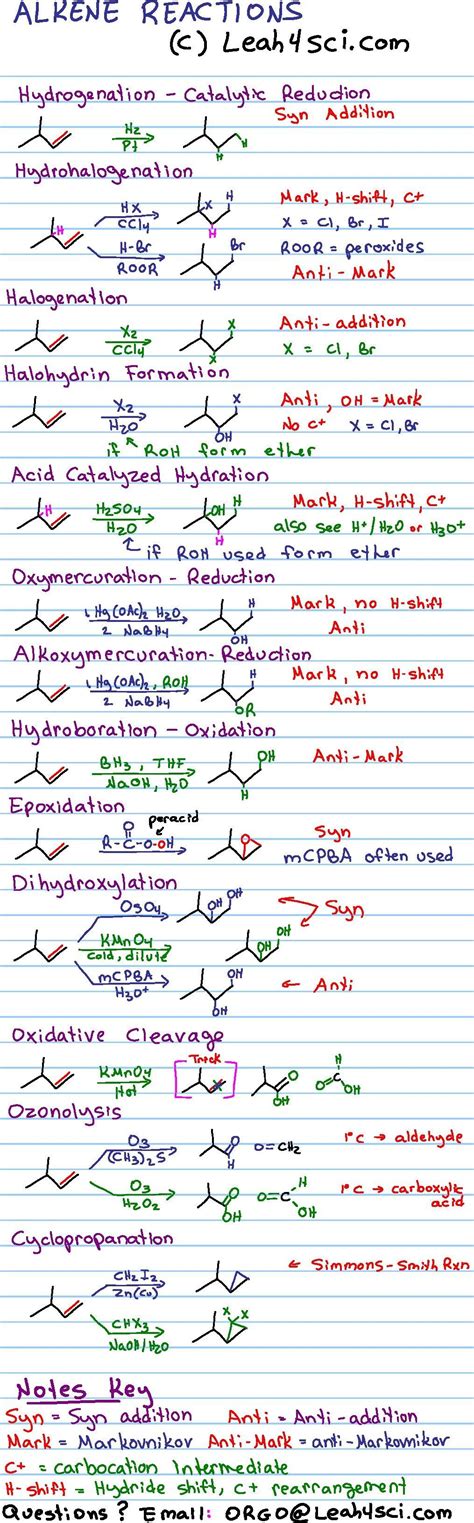 ALKENE REACTIONS
(C) Leah4Sci.com
Hydrogenation - Catalytic Reduction
H2
Pt
H
H
Syn Addition
Hydrohalogenation
H
HX
CCl4
X
H
H
Mark, H-shift, C+
X = Cl, Br, I
H-Br
ROOR
Br
H
ROOR = peroxides
Anti - Mark
Halogenation
X2
CCl4
X
X
Anti-addition
X = Cl, Br
Halohydrin Formation
X2
H2O
X
OH
Anti, OH = Mark
No C+ X = Cl, Br
if ROH form ether
Acid Catalyzed Hydration
H
H2SO4
H2O
OH
H
H
Mark, H-Shift, C+
also see H+/H2O or H3O+
if ROH used form ether
Oxymercuration - Reduction
1 Hg(OAc)2 H2O
2 NaBH4
H
OH
Mark, no H-shift
Anti
Alkoxymercuration-Reduction
1 Hg(OAc)2, ROH
2 NaBH4
H
OR
Mark, no H-shift
Anti
Hydroboration - Oxidation
BH3, THF
NaOH, H2O
OH
H
Anti-Mark
Epoxidation
peracid
O
R-C-O-OH
O
Syn
mCPBA often used
Dihydroxylation
OsO4
OH
OH
Syn
KMnO4
cold, dilute
OH
OH
mCPBA
H3O+
OH
OH
Anti
Oxidative Cleavage
KMnO4
Hot
Trick
X
O
OH
H
O=C
OH
Ozonolysis
O3
(CH3)2S
O
H
O=CH2
1°C → aldehyde
O3
H2O2
O
OH
O=C
H
OH
1°C → carboxylic
acid
Cyclopropanation
CH2I2
Zn(Cu)
Simmons-Smith Rxn
CHX3
NaOH/H2O
X X
Notes Key
Syn = Syn addition Anti = Anti-addition
Mark = Markovnikov Anti-Mark = anti-Markovnikov
C+ = carbocation Intermediate
H-shift = Hydride shift, C+ rearrangement
Questions? Email: ORGO@Leah4sci.com